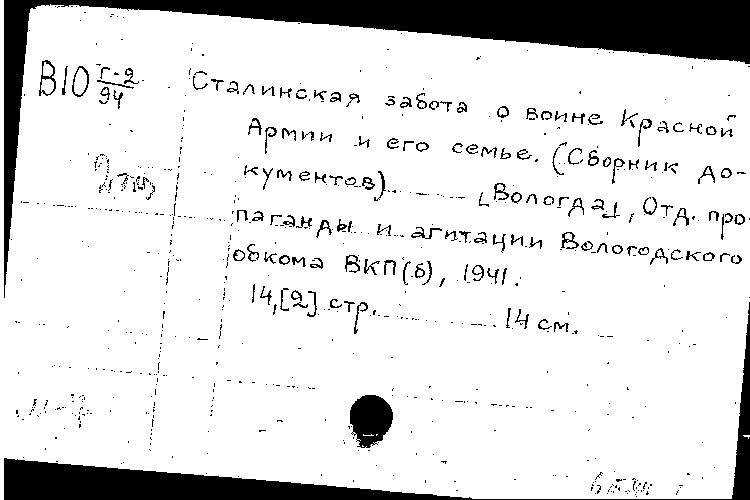 В10 г-2/94
Сталинская забота о воине Красной
Армии и его семье. (Сборник до-
кументов). [Вологда], Отд. про-
паганды и агитации Вологодского
обкома ВКП(б), 1941.
14,[2] стр. 14 см.